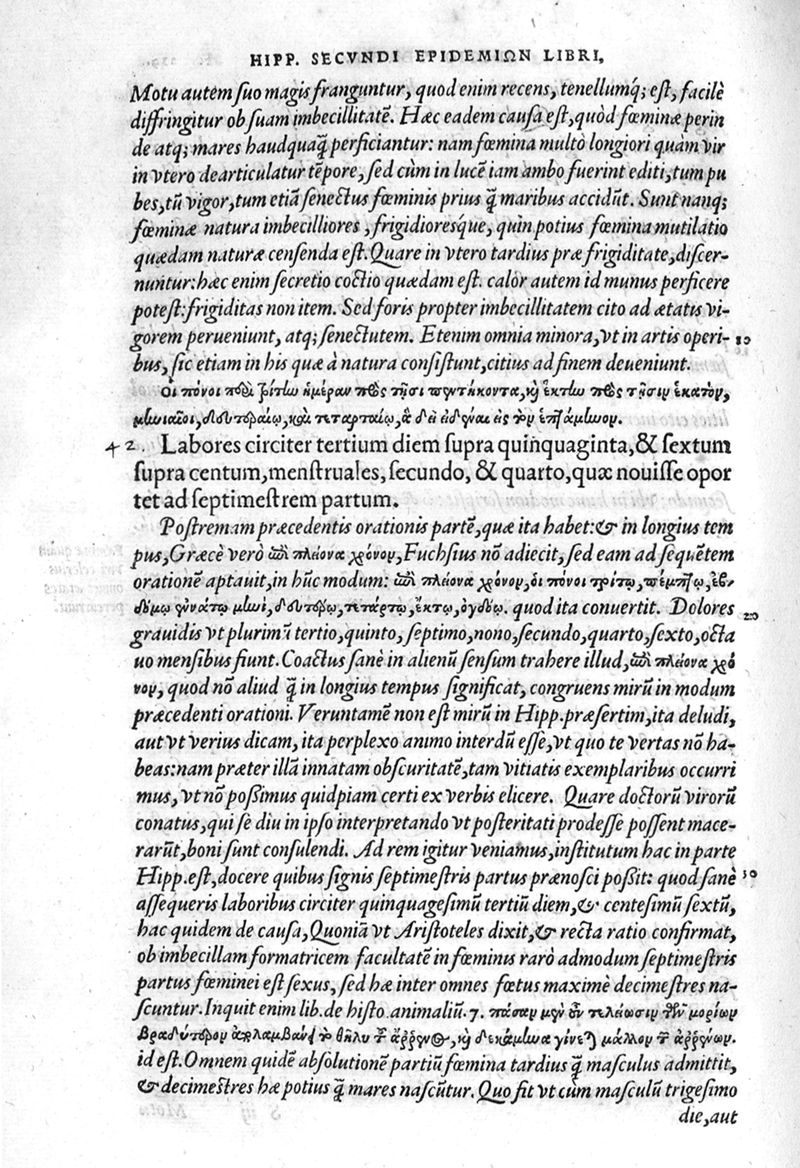 HIPP. SECVNDI EPIDEMIΩN LIBRI,
Motu autem suo magis franguntur, quod enim recens, tenellumq́; est, facilè
diffringitur ob suam imbecillitatē. Hæc eadem causa est, quòd fœminæ perin
de atq; mares haudquaq̃ perficiantur: nam fœmina multò longiori quàm vir
in vtero dearticulatur tēpore, sed cùm in lucē iam ambo fuerint editi, tum pu
bes, tū vigor, tum etiā senectus fœminis prius q̃ maribus accidūt. Sunt nanq;
fœminæ natura imbecilliores, frigidioresq́ue, quin potius fœmina mutilatio
quædam naturæ censenda est. Quare in vtero tardius præ frigiditate, discer-
nuntur: hæc enim secretio coctio quædam est. calor autem id munus perficere
potest: frigiditas non item. Sed foris propter imbecillitatem cito ad ætatis vi-
gorem perueniunt, atq; senectutem. Etenim omnia minora, vt in artis operi- 10
bus, sic etiam in his quæ à natura consistunt, citius ad finem deueniunt.
Οἱ πόνοι περὶ τρίτην ἡμέραν πρὸς τῇσι πεντήκοντα, καὶ ἕκτην πρὸς τῇσιν ἑκατὸν,
μηνιαῖοι, δευτεραίῳ, καὶ τεταρταίῳ, ἃ δεῖ εἰδέναι ἐς τὸν ἑπτάμηνον.
42. Labores circiter tertium diem supra quinquaginta, & sextum
supra centum, menstruales, secundo, & quarto, quæ nouisse opor
tet ad septimestrem partum.
Postremam præcedentis orationis partē, quæ ita habet: & in longius tem
pus, Græcè verò ἐπὶ πλείονα χρόνον, Fuchsius nō adiecit, sed eam ad sequētem
orationē aptauit, in hūc modum: ἐπὶ πλείονα χρόνον, οἱ πόνοι τρίτῳ, πέμπτῳ, ἑβ-
δόμῳ ἐννάτῳ μηνὶ, δευτέρῳ, τετάρτῳ, ἕκτῳ, ὀγδόῳ. quod ita conuertit. Dolores 20
grauidis vt plurimū tertio, quinto, septimo, nono, secundo, quarto, sexto, octa
uo mensibus fiunt. Coactus sanè in alienū sensum trahere illud, ἐπὶ πλείονα χρό
νον, quod nō aliud q̃ in longius tempus significat, congruens mirū in modum
præcedenti orationi. Veruntamē non est mirū in Hipp. præsertim, ita deludi,
aut vt verius dicam, ita perplexo animo interdū esse, vt quo te vertas nō ha-
beas: nam præter illā innatam obscuritatē, tam vitiatis exemplaribus occurri
mus, vt nō poßimus quidpiam certi ex verbis elicere. Quare doctorū virorū
conatus, qui se diu in ipso interpretando vt posteritati prodesse possent mace-
rarūt, boni sunt consulendi. Ad rem igitur veniamus, institutum hac in parte
Hipp. est, docere quibus signis septimestris partus prænosci poßit: quod sanè 30
assequeris laboribus circiter quinquagesimū tertiū diem, & centesimū sextū,
hac quidem de causa, Quoniā vt Aristoteles dixit, & recta ratio confirmat,
ob imbecillam formatricem facultatē in fœminus rarò admodum septimestris
partus fœminei est sexus, sed hæ inter omnes fœtus maximè decimestres na-
scuntur. Inquit enim lib. de histo. animaliū. 7. πᾶσαν μὲν οὖν τελείωσιν τῶν μορίων
βραδύτερον ἀπολαμβάνει τὸ θῆλυ τοῦ ἄῤῥενος, καὶ δεκάμηνα γίνεται μᾶλλον τῶν ἀῤῥένων.
id est. Omnem quidē absolutionē partiū fœmina tardius q̃ masculus admittit,
& decimestres hæ potius q̃ mares nascūtur. Quo fit vt cùm masculū trigesimo
die, aut